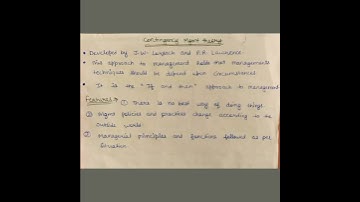 Contingency Mgmt theory
• Developed by J.W. Lorsach and P.R. Lawrence.
• This approach to management holds that managements
techniques should be depend upon circumstances.
• It is the "If and then" approach to management
Features → ① There is no best way of doing things.
② Mgmt policies and practices change according to the
outside world.
③ Managerial principles and functions followed as per
situation